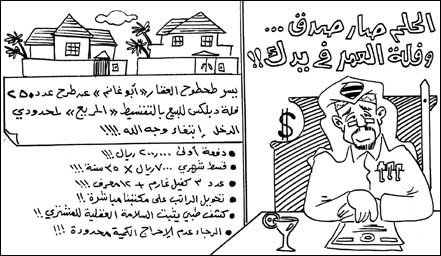 الحلم صار صدق...
وفلة العمر في يدك!!
يسر طحطوح العقار «أبو غانم» عن طرح عدد ٢٥
فلة دبلكس للبيع بالتقسيط «المريح» لمحدودي
الدخل إبتغاء وجه الله !!!!
$
● دفعة أولى ٢٠٠,٠٠٠ ريال!!
● قسط شهري ٧٠٠٠ ريال X ٣٥ سنة !!!
● عدد ٣ كفيل غارم + ١٢ معرف!!
● تحويل الراتب على مكتبنا مباشرة !!
● كشف طبي يثبت السلامة العقلية للمشتري !!
● الرجاء عدم الإحراج الكمية محدودة !!!